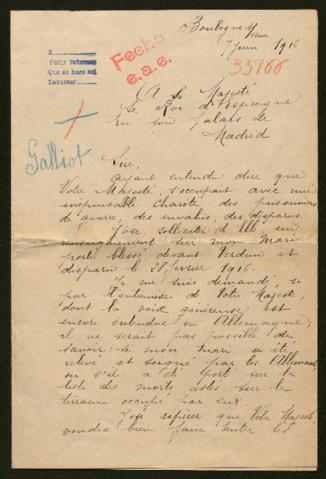 Boulogne s/ Seine
7 Juin 1916
A
Pedir Informes
Que se hace así
Fecho
e.a.e.
35166
A Sa Majesté
Le Roi d'Espagne
En son palais de
Madrid
Galliot
Sire,
Ayant entendu dire que
Votre Majesté s'occupait avec une
inépuisable charité des prisonniers
de guerre, des envahis, des disparus.
J'ose solliciter d'Elle un
renseignement sur mon Mari
porté blessé devant Verdun et
disparu le 28 février 1916.
Je me suis demandé, si
par l'entremise de Votre Majesté,
dont la voix généreuse est
encore entendue en Allemagne;
il ne serait pas possible de
savoir: si mon mari a été
relevé et soigné par les Allemands
ou s'il a été porté sur la
liste des morts restés sur le
terrain occupé par eux.
J'ose espérer que Votre Majesté,
voudra bien faire tenter les